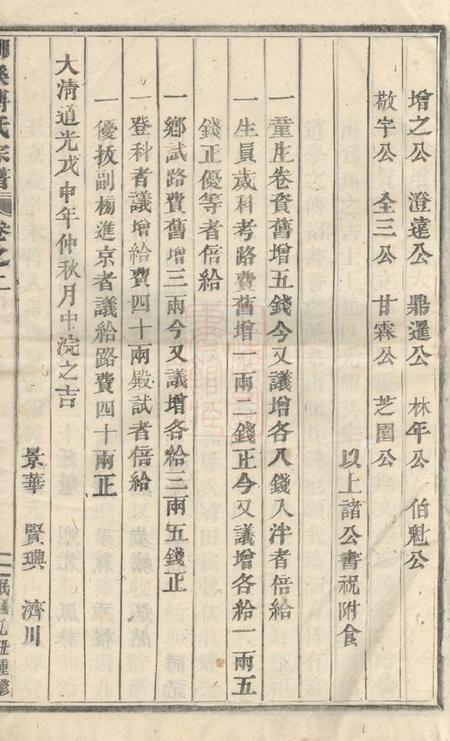 增之公 澄達公 鼎暹公 林年公 伯魁公
敬宇公 全三公 甘霖公 芝圃公
以上諸公書祝附食
一童生卷資舊增五錢今又議增各八錢入泮者倍給
一生員歲科考路費舊增一兩二錢正今又議增各給一兩五
錢正優等者倍給
一鄉試路費舊增三兩今又議增各給三兩五錢正
一登科者議增給費四十兩殿試者倍給
一優拔副榜進京者議給路費四十兩正
大清道光戊申年仲秋月中浣之吉
景華 賢璵 濟川
氏宗譜 卷之二 民國乙丑重修